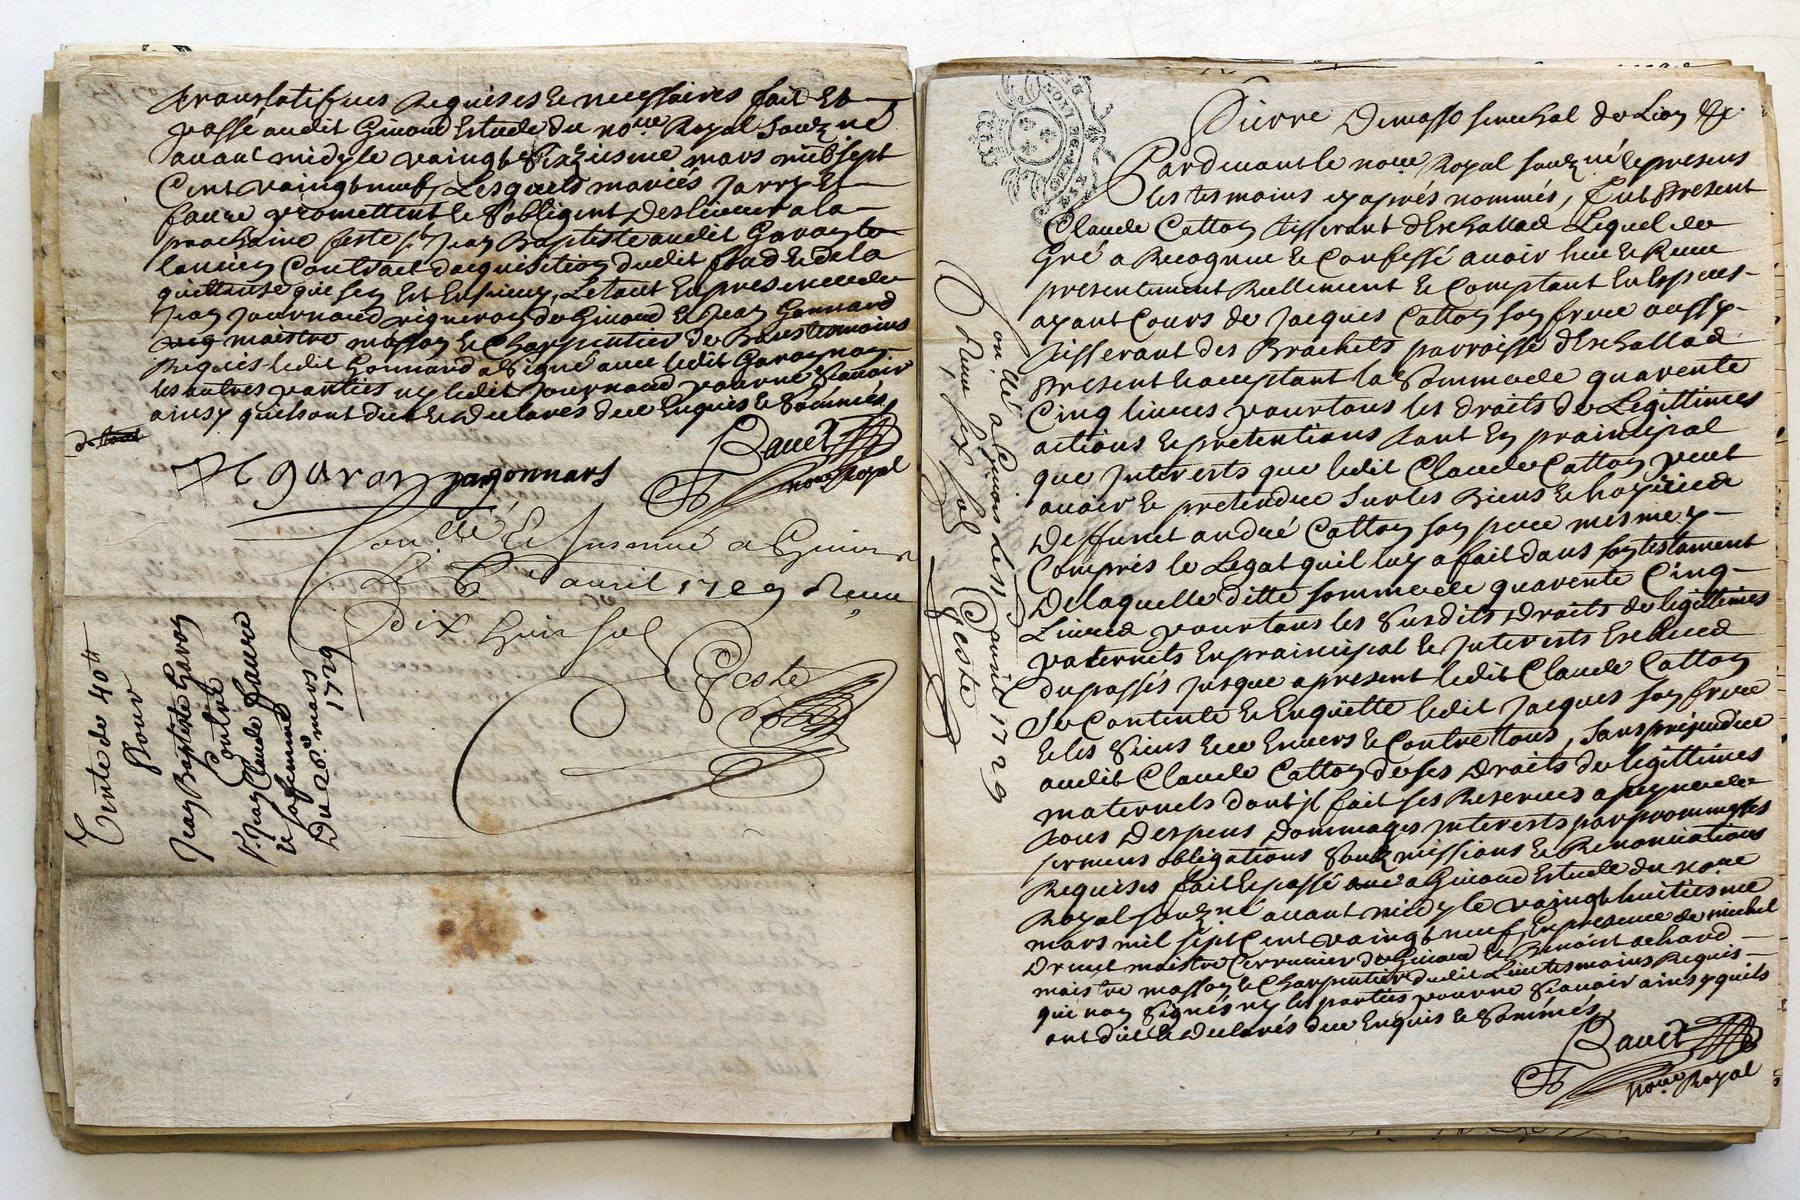 translatifves Requises & necessaires fait Et
passé audit Givord Estude du no.re Royal souz.né
avant midy le vaingt Sixiesme mars mil sept
Cent vaingt neuf, Lesquels mariés Jarry Et
faure promettent & S'obligent Deslivrer a la
prochaine feste st Jean Baptiste audit Garon
lancien Contract dacquisition dudit fond & de la
quittance qui sen Est Ensuivy, Le tout En presence de
Jean Journaud vigneron de Givord & Jean Gonnard
maistre masson & Charpentier de Bans temoins
Requis ledit Gonnard a Signé avec ledit Garon non
les autres parties ny ledit Journaud pour ne Scavoir
ainsy quils ont dit & Declarés de ce Enquis & Sommés,
garon jangonnars
Bauet
no.re Royal
Con.llé & Insinué a Givors
Le 6e avril 1729 Receu
dix huit sol
Geste
Vente de 40 tt
Pour
Jean Baptiste Garon
Contre
Claude Faure
& sa femme
Du 26e mars
1729
Pierre Demasso senechal de Lion &c.
Pardevant le no.re Royal souz.né & presens
les tesmoins cy aprés nommés, fut Present
Claude Catton tisserant d'Eschallad Lequel de
Gré a Recognu & Confessé avoir heu & Receu
presentement Reellement & Comptant En Especes
ayant Cours de Jacques Catton son frere aussy
tisserant des Brachets parroisse d'Eschallad
Present & acceptant la Somme de quarente
Cinq livres pour tous les droits de Legittimes
actions & pretentions tant En prainsipal
que Interests que ledit Claude Catton peut
avoir & pretendre Sur les Biens & hoirie de
Deffunct andré Catton son pere mesme y
Compris le Legat quil luy a fait dans son testament
De laquelle ditte somme de quarente Cinq
Livres pour tous les Susdits Droits de legittimes
paternels En prainsipal & Interests Escheus
du passés jusque a present ledit Claude Catton
Se Contente & En quitte ledit Jacques son frere
& les Siens Envers & Contre tous, Sans prejudice
audit Claude Catton de ses Droits de legittimes
maternels dont il fait ses Reserves a peyne de
tous Despens Dommages Interests par prommesses
sermens obligations Soubzmissions & Renonciations
Requises fait & passé a Givord Estude du no.re
Royal souz.né avant midy le vaingt huitiesme
mars mil sept Cent vaingt neuf, En presence de michel
Drevet maistre Cerrurier de Givord & Benoist achard
maistre masson & Charpentier dudit Lieu tesmoins Requis
qui non Signés ny les parties pour ne Scavoir ainsy quils
ont dit & Declarés de ce Enquis & Sommés,
Bauet
no.re Royal
Con.llé a Givors le 11 avril 1729
Receu six sol
Geste